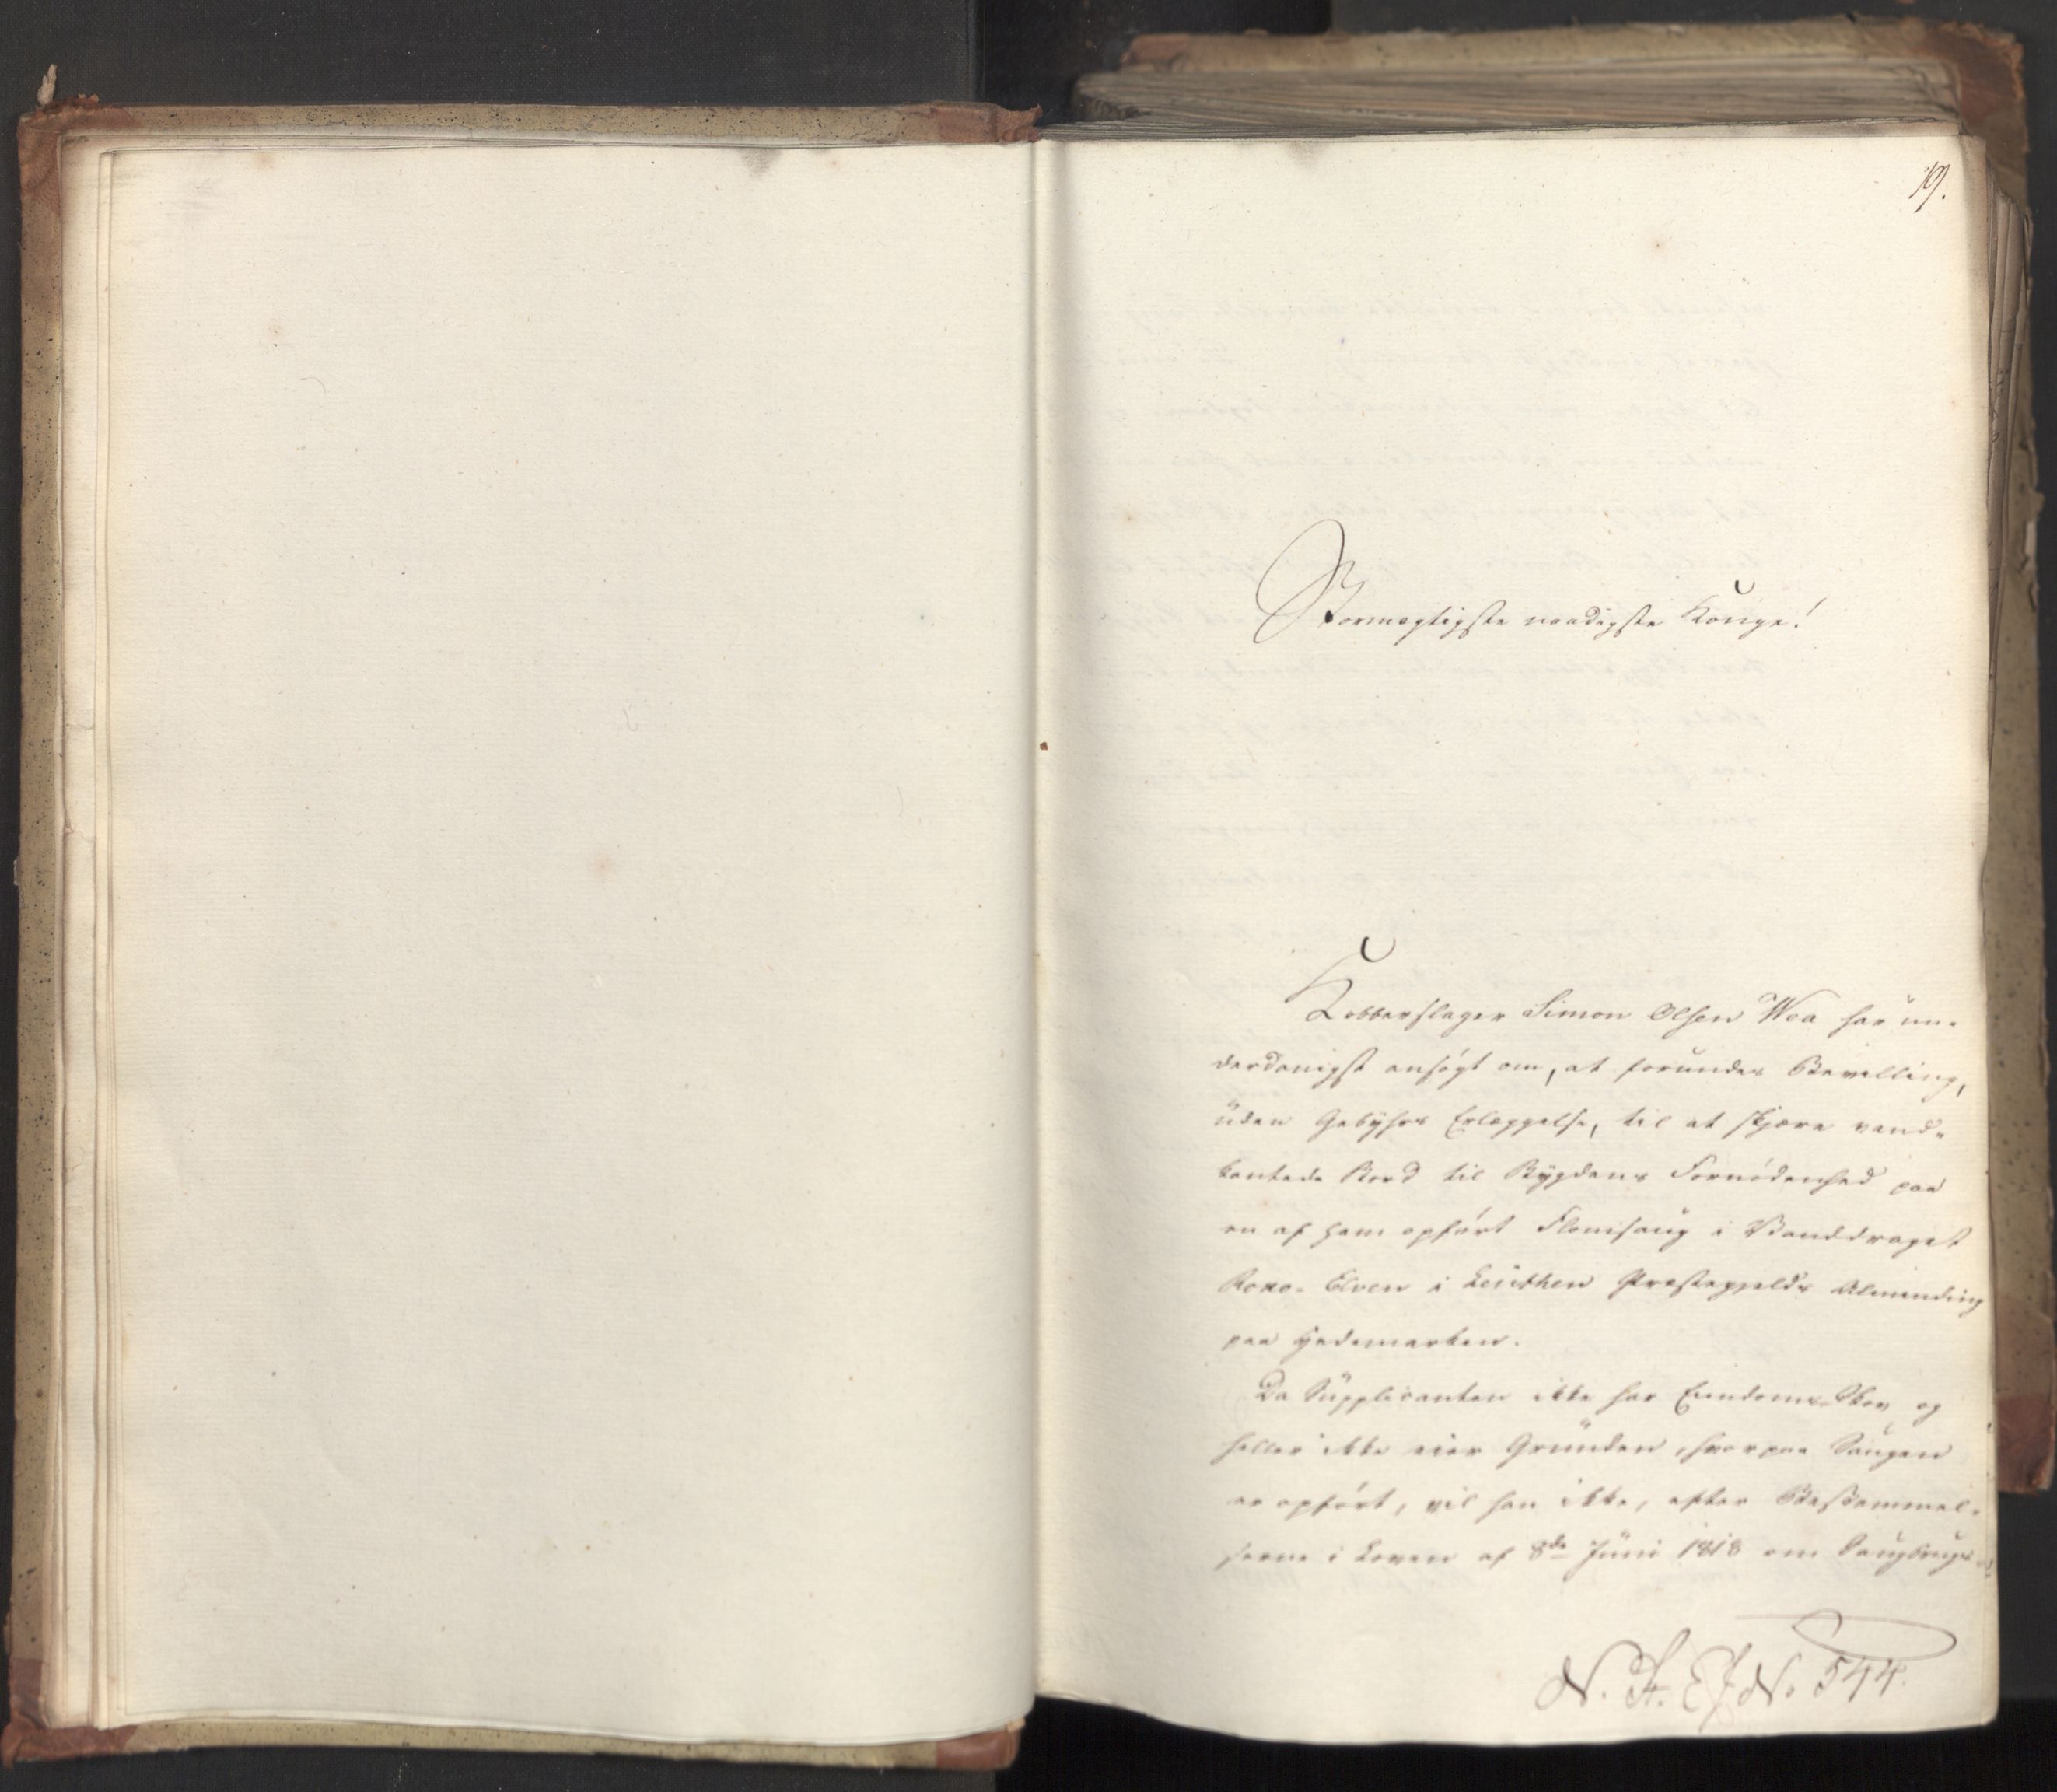 19.
Stormægtigste naadigste Konge!
Kobberslager Simon Olsen Woa har un-
derdanigst ansøgt om, at forundes Bevilling,
uden Gebyhrs Erlæggelse, til at skjære vand-
kantede Bord til Bygdens Fornødenhed paa
en af ham opført Flomsaug i Vanddraget
Roko-Elven i Leuthen Præstegjelds Alminding
paa Hedemarken.
Da Supplicanten ikke har Eiendoms-Skov og
heller ikke eier Grunden, hvorpaa Saugen
er opført, vil han ikke, efter Bestemmel-
serne i Loven af 8de Juni 1818 om Saugbrugs-
N. St. E J. No 544.